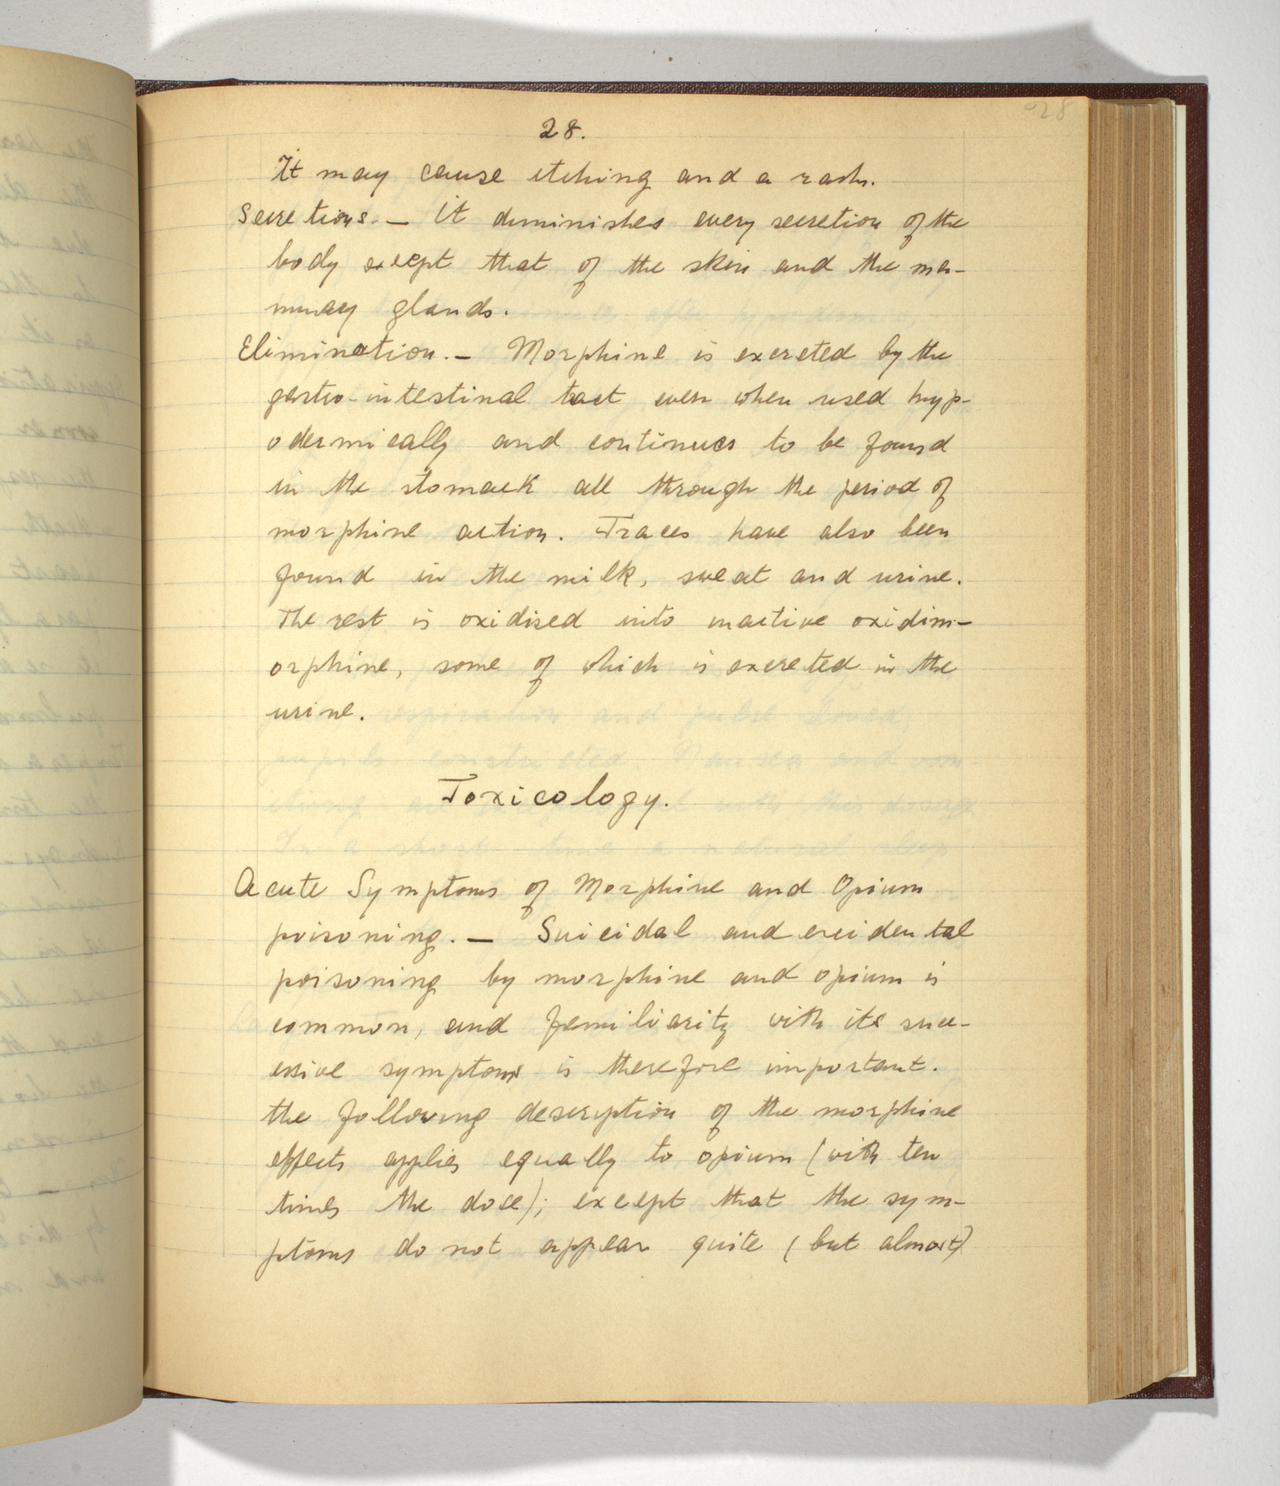 28
28.
It may cause itching and a rash.
Secretions. — It diminishes every secretion of the
body except that of the skin and the ma-
mmary glands.
Elimination. — Morphine is excreted by the
gastro-intestinal tract even when used hyp-
odermically and continues to be found
in the stomack all through the period of
morphine action. Traces have also been
found in the milk, sweat and urine.
The rest is oxidized into inactive oxidim-
orphine, some of which is excreted in the
urine.
Toxicology.
Acute Symptoms of Morphine and Opium
poisoning. — Suicidal and accidental
poisoning by morphine and opium is
common, and familiarity with its succ-
essive symptoms is therefore important.
the following description of the morphine
effects applies equally to opium (with ten
times the dose); except that the sym-
ptoms do not appear quite (but almost)